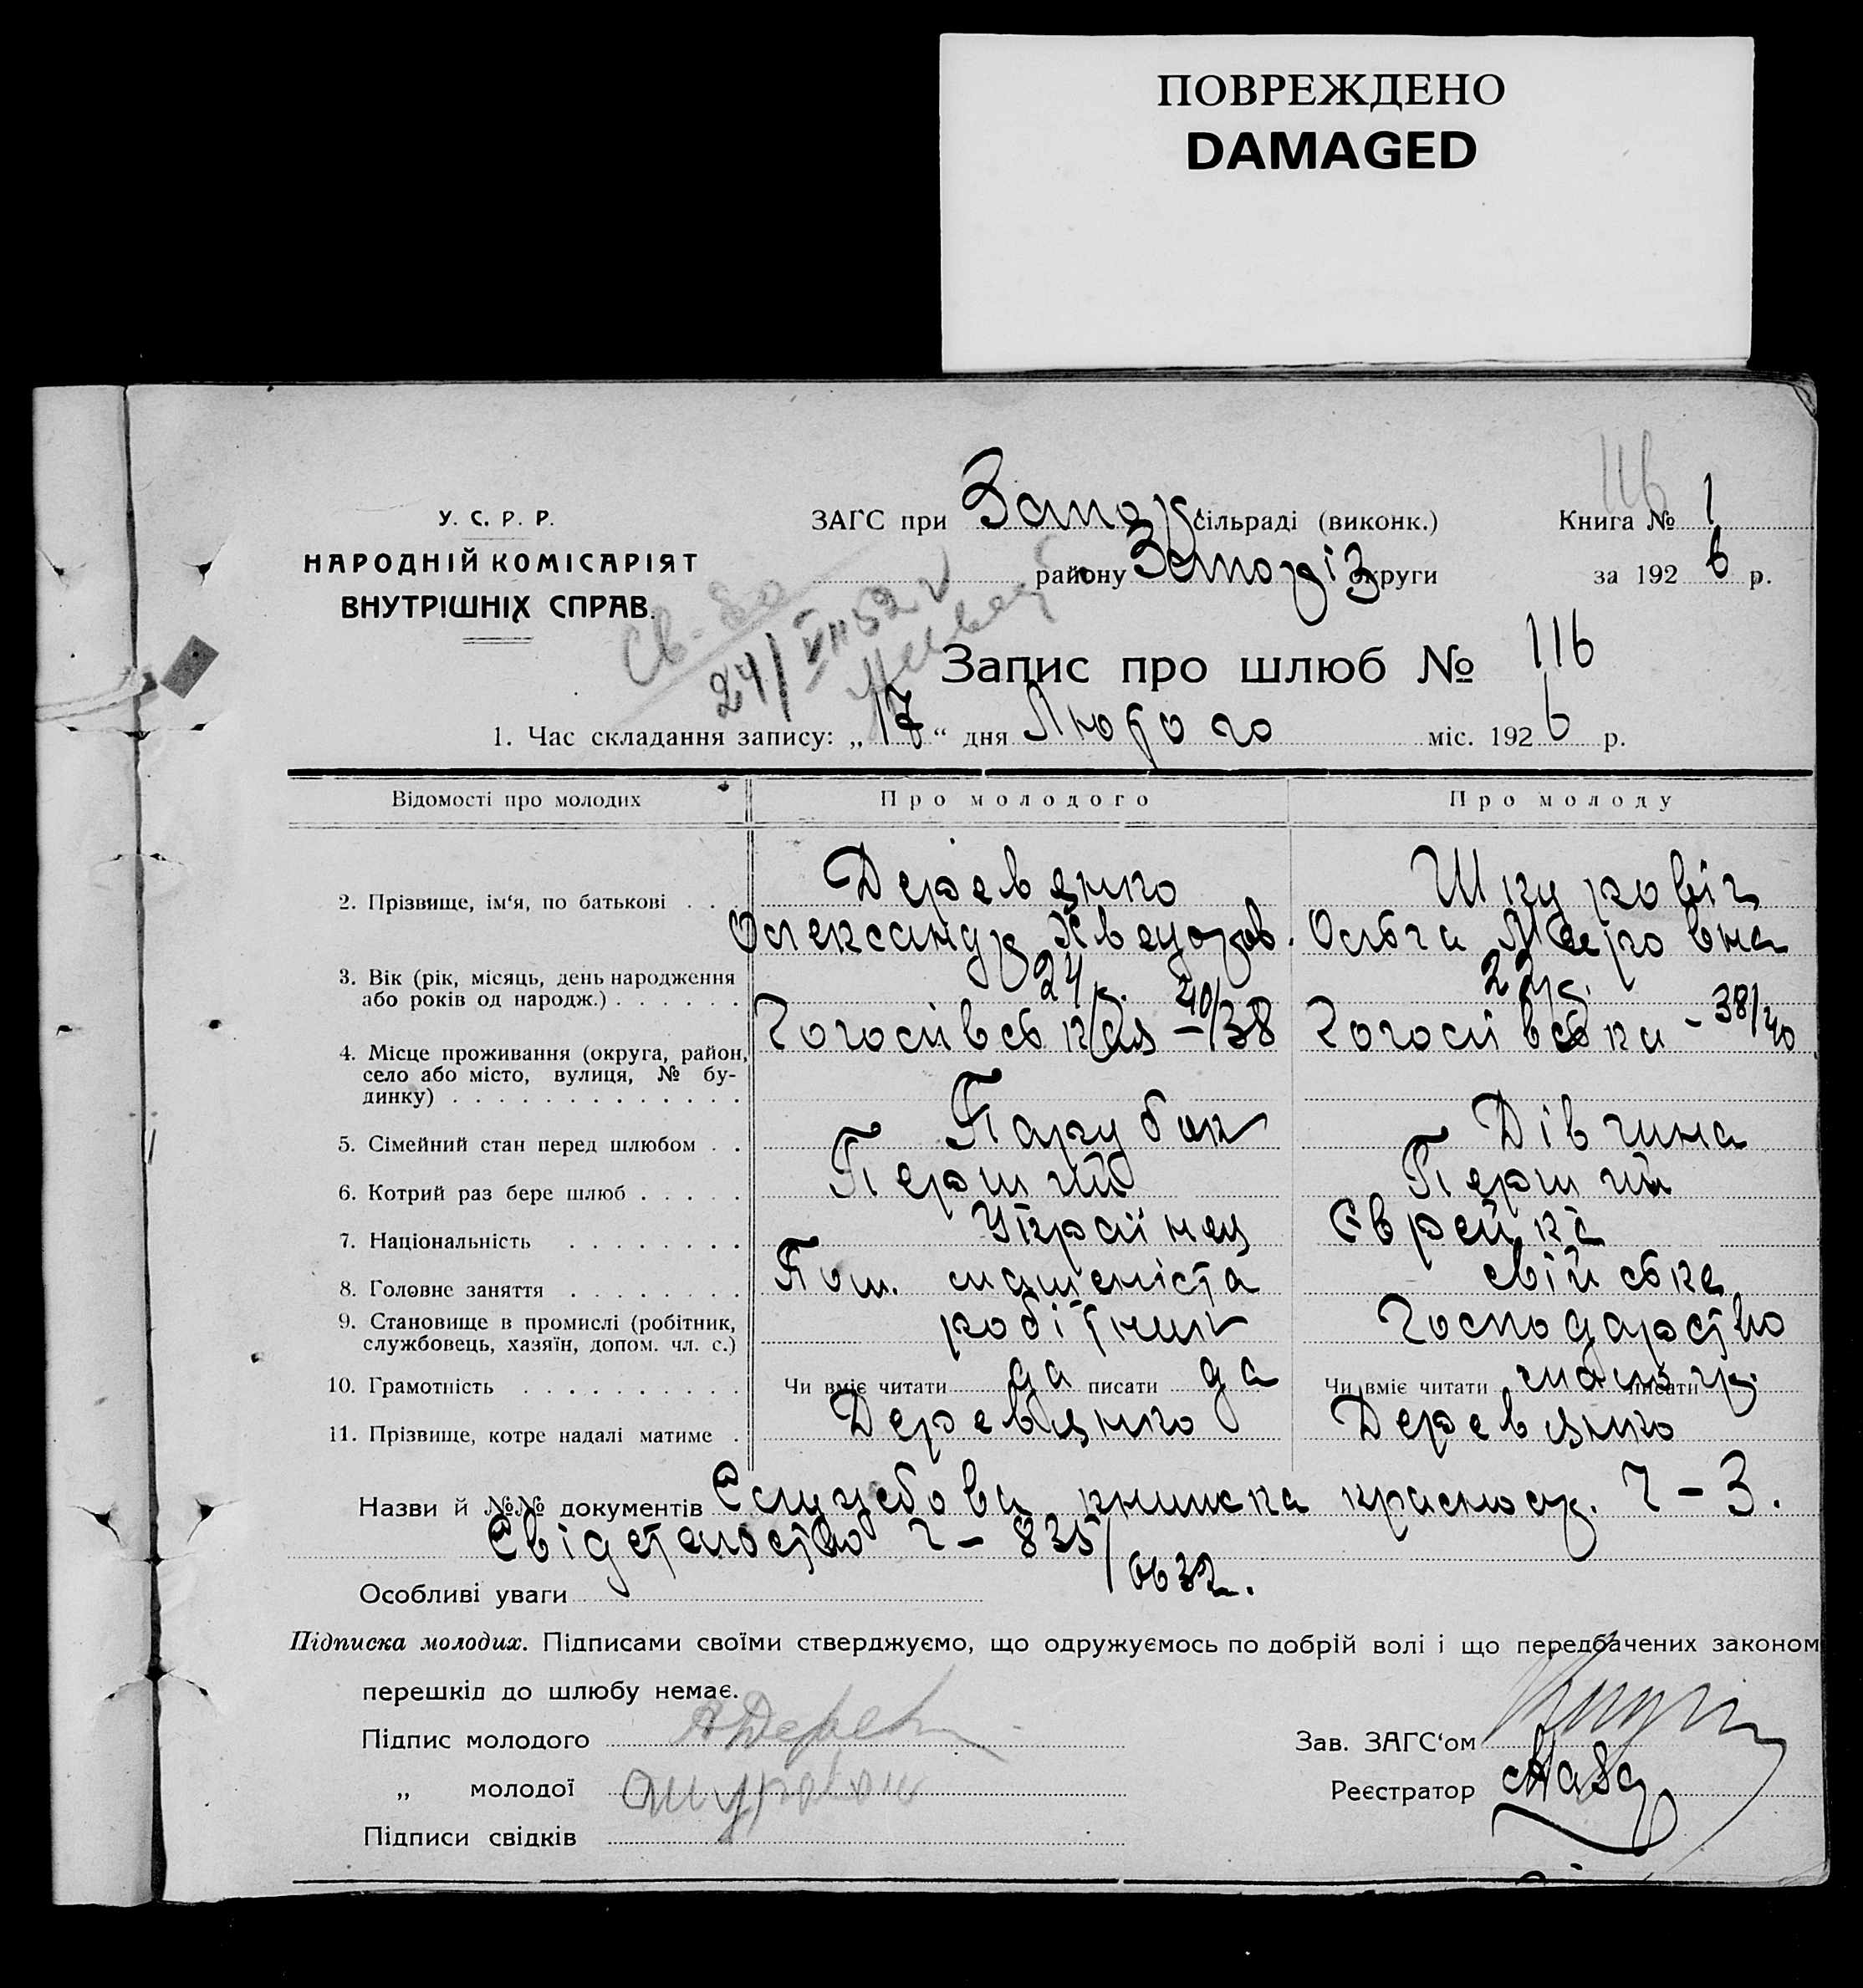 ПОВРЕЖДЕНО
DAMAGED
116
У. С. Р. Р.
НАРОДНІЙ КОМІСАРІЯТ
ВНУТРІШНІХ СПРАВ.
ЗАГС при Запор. сільраді (виконк.)
Книга № 1
району Запоріз округи
за 1926 р.
Св-во
24/VII 52
Запис про шлюб № 116
1. Час складання запису: „17“ дня Лютого міс. 1926 р.
Відомості про молодих Про молодого Про молоду
2. Прізвище, ім‘я, по батькові . . . Деревянко Шкуровіч
Олександр Хведоров. Ольга Мееровна
3. Вік (рік, місяць, день народження або років од народж.) . . . . . . 24 р. 22 р.
4. Місце проживання (округа, район, село або місто, вулиця, № будинку) . . . . . . . . . . . . . Гоголівськая – 40/38 Гоголівська - 38/40
5. Сімейний стан перед шлюбом . . Парубок Дівчина
6. Котрий раз бере шлюб . . . . . Перший Перший
7. Національність . . . . . . . . Українец Єврейка
8. Головне заняття . . . . . . . . Пом. машиніста свійське
9. Становище в промислі (робітник, службовець, хазяїн, допом. чл. с.) робітник Господарство
10. Грамотність . . . . . . . . . . Чи вміє читати да писати да Чи вміє читати малогр. писати
11. Прізвище, котре надалі матиме . Деревянко Деревянко
Назви й №№ документів Служебова книжка красноар. Ч – 3.
Свідетельство Ч – 835/6632.
Особливі уваги
Підписка молодих. Підписами своїми стверджуємо, що одружуємось по добрій волі і що передбачених законом
перешкід до шлюбу немає.
Підпис молодого АДерев
Зав. ЗАГС‘ом
„ молодої
Реєстратор
Підписи свідків